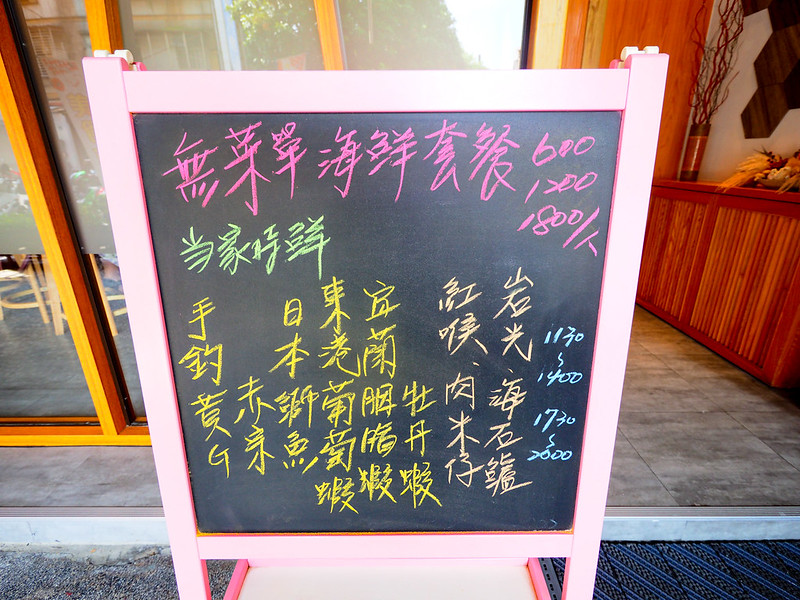 無菜單海鮮套餐 600
1200
1800/人
当家時鮮
岩光、海石鱸
紅喉、肉米仔
牡丹蝦
宜蘭胭脂蝦
東港葡萄蝦
日本獅魚
赤宗
手釣黃G
1130
~
1400
1730
~
2000